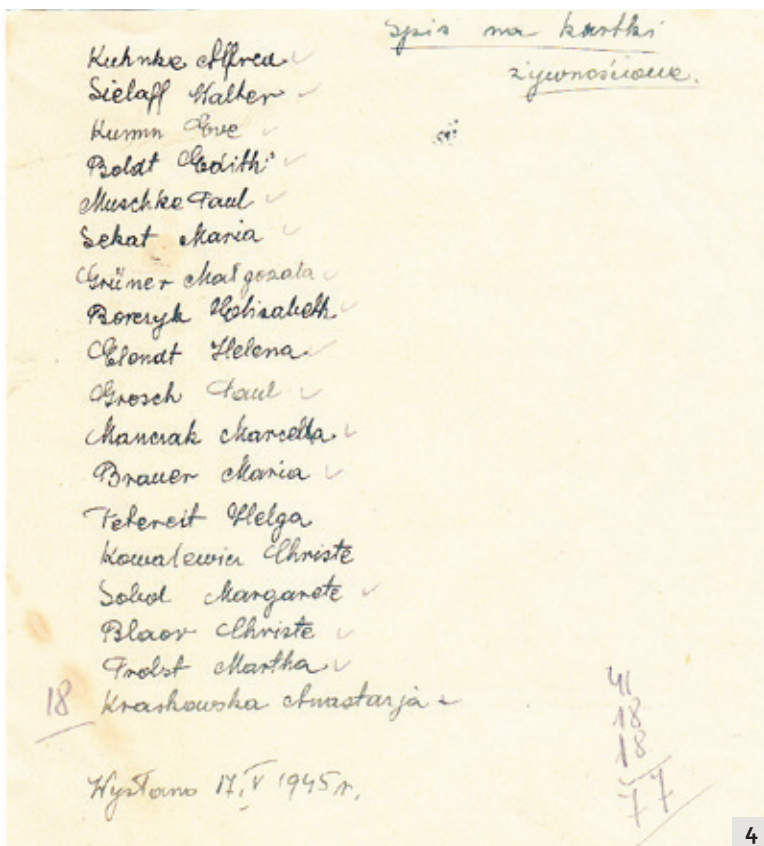 Spis na kartki
żywnościowe.
Kuhnke Alfred
Sielaff Walter
Kumm Eve
Boldt Edith
Muschke Paul
Sekat Maria
Grüner Małgozata
Borczyk Elisabeth
Elondt Helena
Grosch Paul
Manczak Marcella
Brauer Maria
Petereit Helga
Kowalewicz Christe
Sobol Margarete
Blaov Christe
Probst Martha
18 Kraskowska Anastazja
41
18
18
77
Wysłano 17.V 1945 r.
4